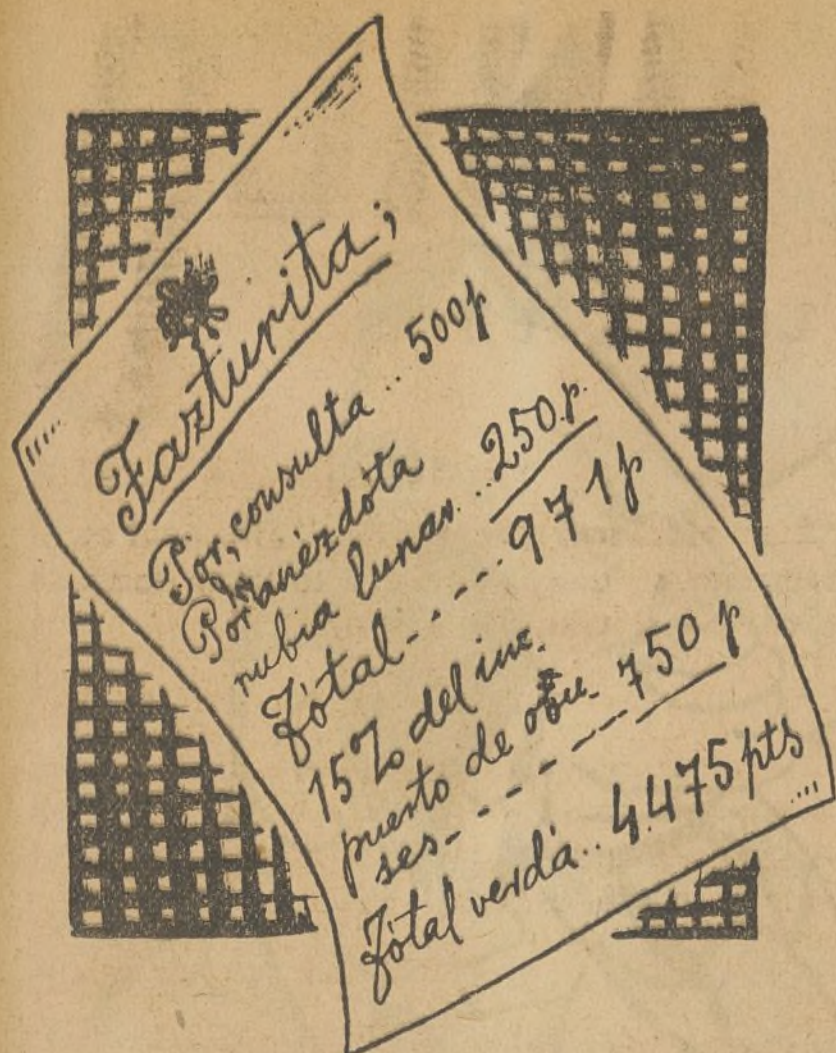 Fazturita;
Por, consulta .. 500 p
Por anézdota
rubia lunar .. 250 p.
Tótal - - - - - 971 p
15% del im-
puesto de
ses - - - - - - 750 p
Tótal verdá .. 4.475 pts